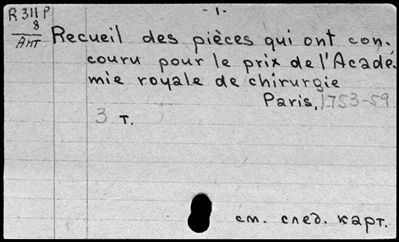 R 311 P
8
Ант
- 1.
Recueil des pièces qui ont con-
couru pour le prix de l'Acadé-
mie royale de chirurgie
Paris, 1753-59
3 т.
см. след. карт.